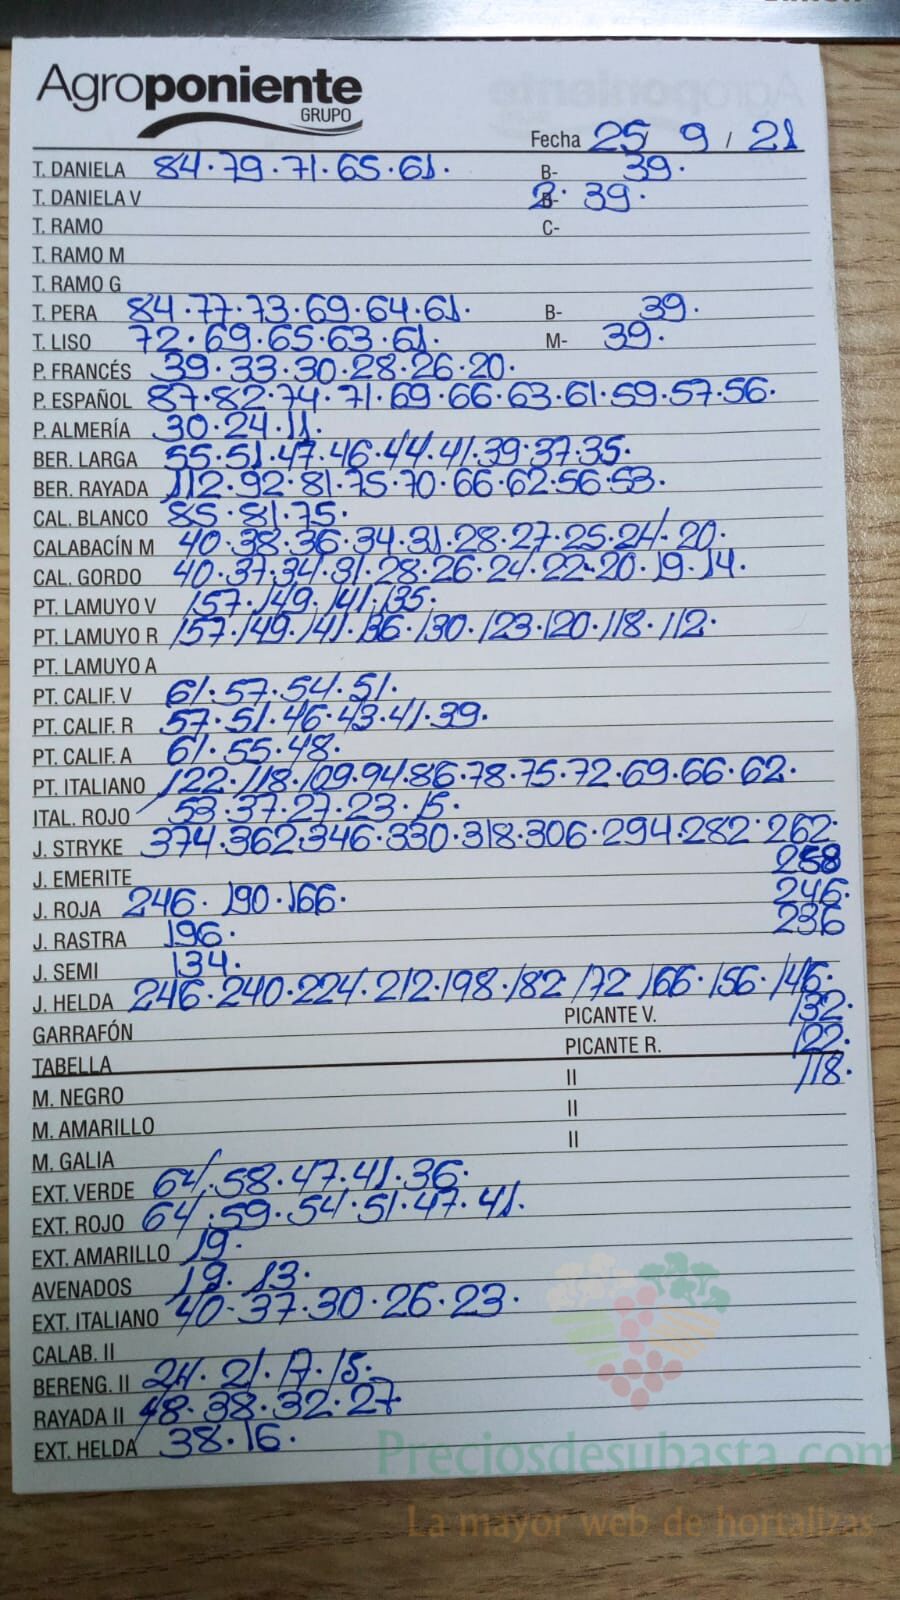 Agroponiente
GRUPO
Fecha 25 / 9 / 21
T. DANIELA 84·79·71·65·61· B- 39·
T. DANIELA V B· 39·
T. RAMO C-
T. RAMO M
T. RAMO G
T. PERA 84·77·73·69·64·61· B- 39·
T. LISO 72·69·65·63·61· M- 39·
P. FRANCÉS 39·33·30·28·26·20·
P. ESPAÑOL 87·82·74·71·69·66·63·61·59·57·56·
P. ALMERÍA 30·24·11·
BER. LARGA 55·51·47·46·44·41·39·37·35·
BER. RAYADA 112·92·81·75·70·66·62·56·53·
CAL. BLANCO 85·81·75·
CALABACÍN M 40·38·36·34·31·28·27·25·24·20·
CAL. GORDO 40·37·34·31·28·26·24·22·20·19·14·
PT. LAMUYO V 157·149·141·135·
PT. LAMUYO R 157·149·141·136·130·123·120·118·112·
PT. LAMUYO A
PT. CALIF. V 61·57·54·51·
PT. CALIF. R 57·51·46·43·41·39·
PT. CALIF. A 61·55·48·
PT. ITALIANO 122·118·109·94·86·78·75·72·69·66·62·
ITAL. ROJO 53·37·27·23·15·
J. STRYKE 374·362·346·330·318·306·294·282·262·
J. EMERITE 258
J. ROJA 246·190·166· 246·
J. RASTRA 196· 236
J. SEMI 134·
J. HELDA 246·240·224·212·198·182 172 166·156·146·
GARRAFÓN PICANTE V. 132·
TABELLA PICANTE R. 122·
M. NEGRO II 118·
M. AMARILLO II
M. GALIA II
EXT. VERDE 64·58·47·41·36·
EXT. ROJO 64·59·54·51·47·41·
EXT. AMARILLO 19·
AVENADOS 19·13·
EXT. ITALIANO 40·37·30·26·23·
CALAB. II
BERENG. II 24·21·17·15·
RAYADA II 48·38·32·27
EXT. HELDA 38·16·
Preciosdesubasta.com
La mayor web de hortalizas